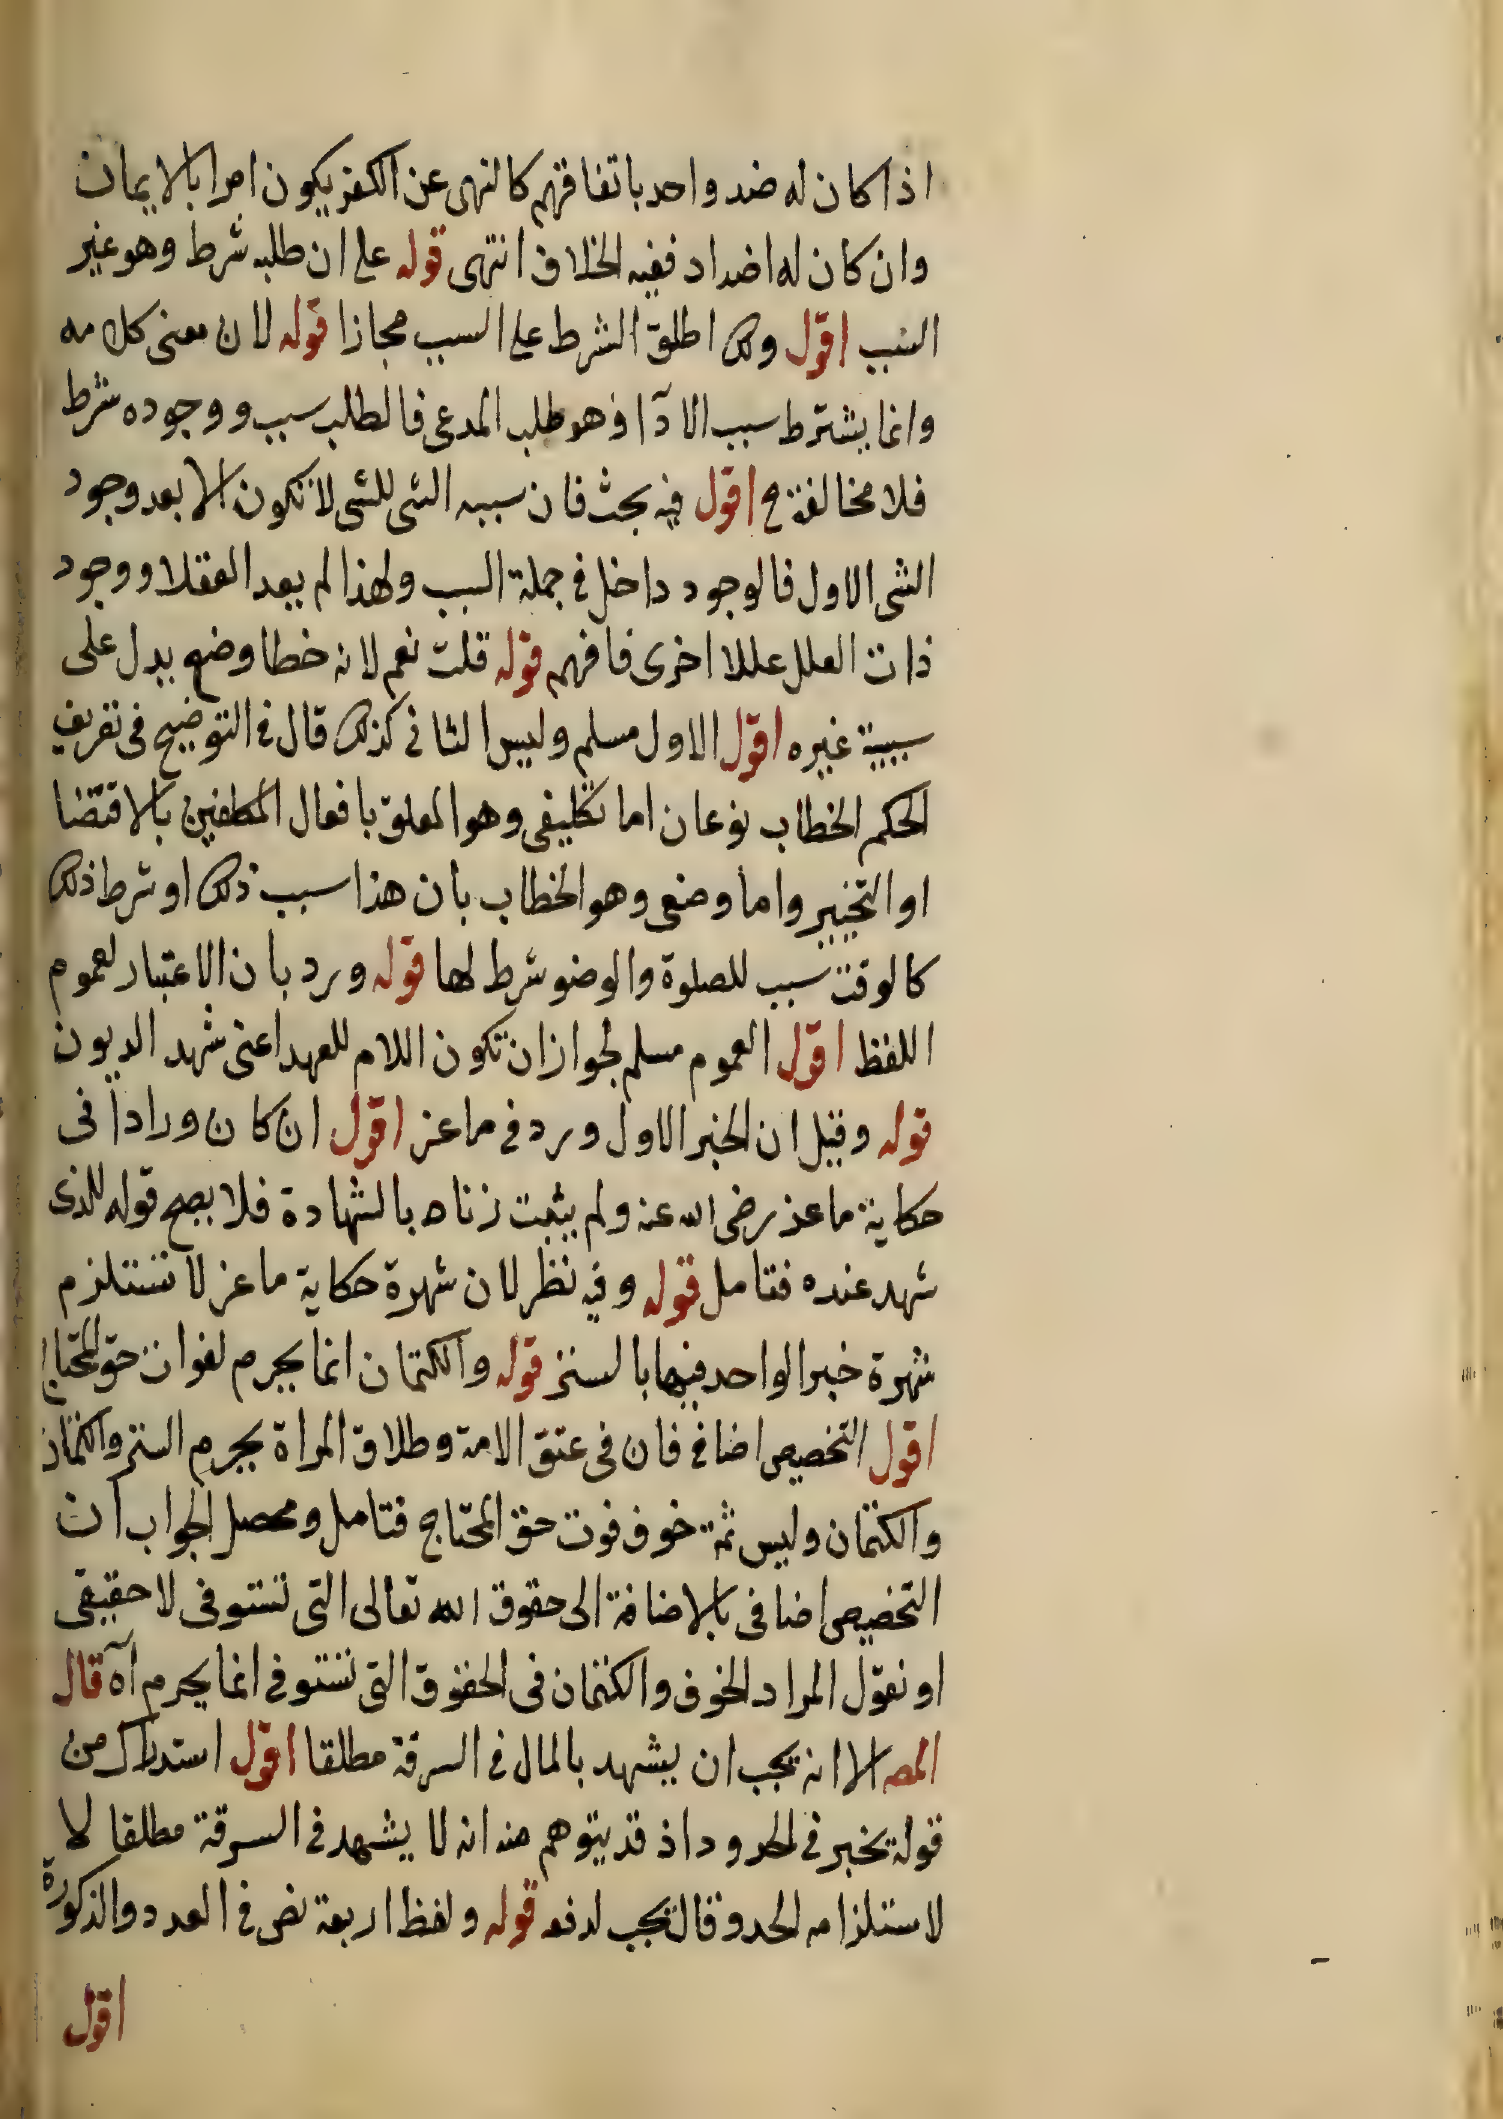 اذا كان له ضد واحد باتفاقهم كالنهى عن الكفر يكون امرا بالايمان
وان كان له اضداد ففيه الخلاف انتهى قوله على ان طلبه شرط وهو غير
السبب اقول ولك اطلق الشرط على السبب مجازا قوله لان معنى كلامه
وانما يشترط سبب الادآ اذ هو طلب المدعى فالطلب سبب و وجوده شرط
فلا مخالفة ح اقول فيه بحث فان سببه الشى للشى لا تكون الا بعد وجود
الشى الاول فالوجود داخل فى جملة السبب ولهذا لم يعد العقلا و وجود
ذات العلل عللا اخرى فافهم قوله قلت نعم لانه خطا وضع يدل على
سببية غيره اقول الاول مسلم وليس الثانى كذلك قال فى التوضيح فى تعريف
الحكم الخطاب نوعان اما تكليفى وهو المعلق بافعال المكلفين بالاقتضا
او التخيير واما وضعى وهو الخطاب بأن هذا سبب ذلك او شرط ذلك
كالوقت سبب للصلوة والوضو شرط لها قوله ورد بان الاعتبار لعموم
اللفظ اقول العموم مسلم لجواز ان تكون اللام للعهد اعنى شهد الديون
قوله وقيل ان الخبر الاول ورد فى ماعز اقول ان كان ورادا فى
حكاية ماعذ رضى الله عنه ولم يثبت زناه بالشهادة فلا يصح قوله للذى
شهد عنده فتامل قوله وفيه نظر لان شهرة حكاية ماعز لا تستلزم
شهرة خبر الواحد فيها بالستر قوله والكتمان انما يحرم لفوات حق المحتاج
اقول التخصيص اضافى فان فى عتق الامة وطلاق المراة يحرم الستر والكتمان
والكتمان وليس ثمة خوف فوت حق المحتاج فتامل ومحصل الجواب ان
التخصيص اضافى بالاضافة الى حقوق الله تعالى التى تستوفى لا حقيقى
او نقول المراد الخوف والكتمان فى الحقوق التى تستوفى انما يحرم آه قال
المصـ الا انه يجب ان يشهد بالمال فى السرقة مطلقا اقول استدراك من
قوله يخير فى الحدود اذ قد يتوهم منه انه لا يشهد فى السرقة مطلقا لا
لاستلزامه الحد وقال يجب لدفعه قوله ولفظ اربعة نص فى العدد والذكورة
اقول